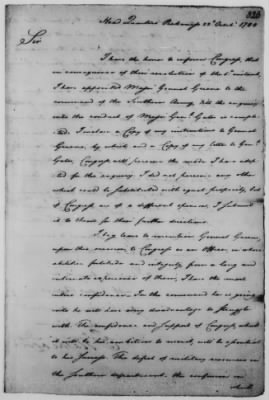 326
Head Quarters Preakness 22d Octr 1780
Sir
I have the honor to inform Congress, that
in consequence of their resolution of the 5th instant,
I have appointed Major General Greene to the
command of the Southern Army, till the enquiry
into the conduct of Major Genl Gates is comple-
ted. I inclose a Copy of my instructions to General
Greene, by which and a Copy of my letter to Genl
Gates, Congress will perceive the mode I have adop
ted for the enquiry. I did not perceive any other
which could be substituted with equal propriety, but
if Congress are of a different opinion, I submit
it to them for their further directions.
I beg leave to mention General Greene
upon this occasion to Congress as an Officer, in whose
abilities fortitude and integrity, from a long and
intimate experience of them, I have the most
intire confidence. In the command he is going
into he will have every disadvantage to struggle
with. The confidence and support of Congress, which
it will be his ambition to merit, will be essential
to his success. The defect of military resources in
the Southern department, the confusion in
which